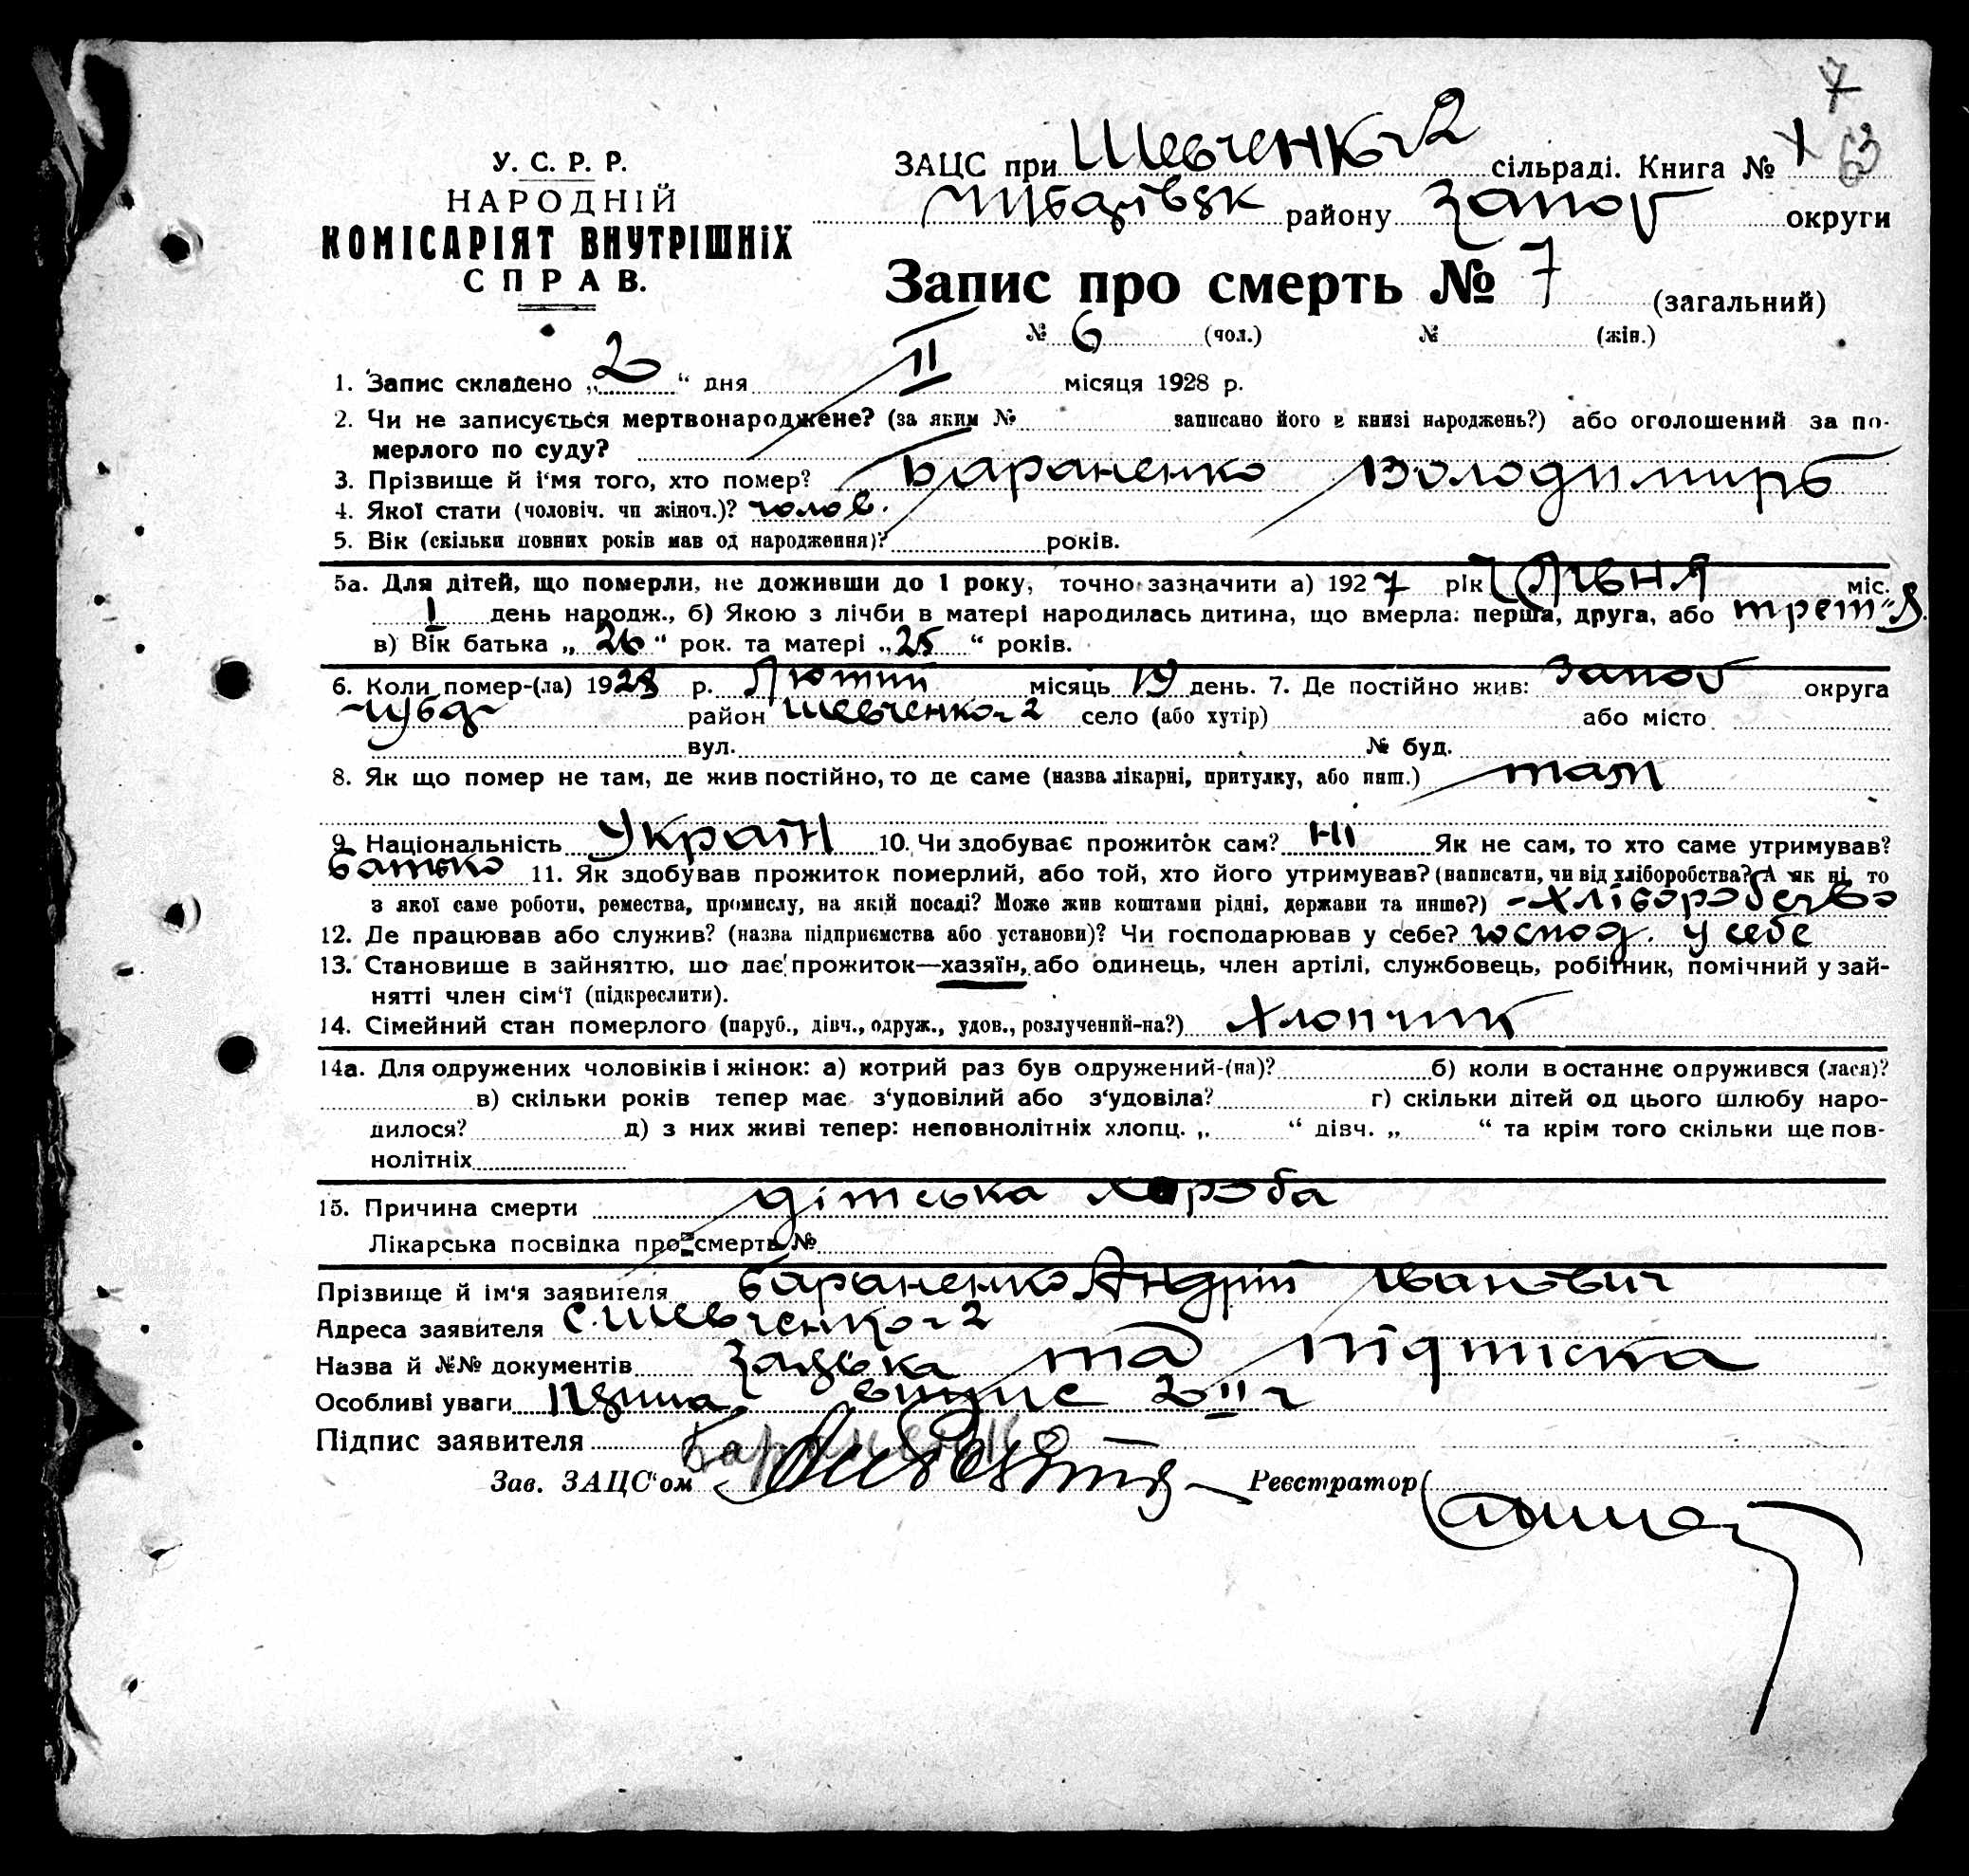 7
63
У. С. Р. Р.
НАРОДНІЙ
КОМІСАРІЯТ ВНУТРІШНІХ
СПРАВ.
ЗАЦС при Шевченко 2 сільраді. Книга № 1
району Запоз округи
Запис про смерть № 7 (загальний)
№ 6 (чол.) № (жін.)
1. Запис складено „ 20 “ дня II місяця 1928 р.
2. Чи не записується мертвонароджене? (за яким № записано його в книзі народжень?) або оголошений за по-
мерлого по суду?
3. Прізвище й і'мя того, хто помер? Бараненко Володимиръ
4. Якої стати (чоловіч. чи жіноч.)? чолов.
5. Вік (скільки повних років мав од народження)? років.
5а. Для дітей, що померли, не доживши до 1 року, точно зазначити а) 1927 рік Червня міс.
1 день народж., б) Якою з лічби в матері народилась дитина, що вмерла: перша, друга, або трет-я
в) Вік батька „ 26 “ рок. та матері „ 25 “ років.
6. Коли помер-(ла) 1928 р. Лютий місяць 19 день. 7. Де постійно жив: Запоз округа
Чубар район Шевченко 2 село (або хутір) або місто
вул. № буд.
8. Як що помер не там, де жив постійно, то де саме (назва лікарні, притулку, або инш.) там
9. Національність Україн 10. Чи здобуває прожиток сам? Ні Як не сам, то хто саме утримував?
батько 11. Як здобував прожиток померлий, або той, хто його утримував? (написати, чи від хліборобства? А як ні, то
з якої саме роботи, ремества, промислу, на якій посаді? Може жив коштами рідні, держави та инше?) - хліборобство
12. Де працював або служив? (назва підприємства або установи)? Чи господарював у себе? господ. у себе
13. Становище в зайняттю, що дає прожиток—хазяїн, або одинець, член артілі, службовець, робітник, помічний у зай-
нятті член сім'ї (підкреслити).
14. Сімейний стан померлого (паруб., дівч., одруж., удов., розлучений-на?) Хлопчик
14а. Для одружених чоловіків і жінок: а) котрий раз був одружений-(на)? б) коли востаннє одружився (лася)?
в) скільки років тепер має з'удовілий або з'удовіла? г) скільки дітей од цього шлюбу наро-
дилося? д) з них живі тепер: неповнолітніх хлопц. „ “ дівч. „ “ та крім того скільки ще пов-
нолітніх
15. Причина смерти дітська хороба
Лікарська посвідка про смерть №
Прізвище й ім'я заявителя Бараненко Андрій Іванович
Адреса заявителя с. Шевченко 2
Назва й №№ документів та підписка
Особливі уваги
Підпис заявителя Бараненко
Зав. ЗАЦС'ом Реєстратор